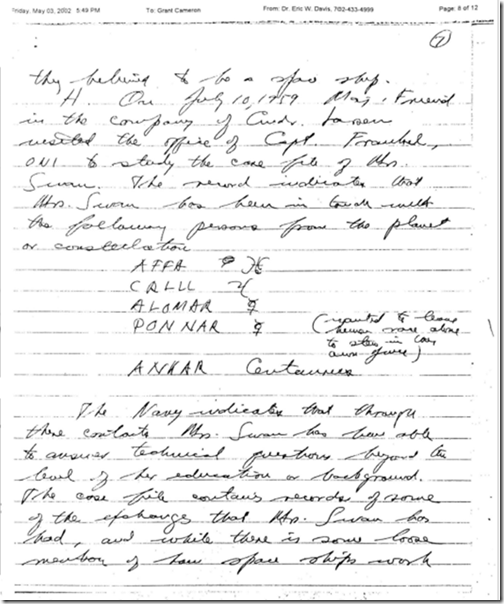 Friday, May 03, 2002 5:49 PM To: Grant Cameron From: Dr. Eric W. Davis, 702-433-4999 Page: 8 of 12
7
they believed to be a space ship.
H. On July 10, 1959 Maj. Friend
in the company of Cmdr. Larsen
visited the office of Capt.
ONI to study the case file of Mrs.
Swan. The record indicates that
Mrs. Swan has been in touch with
the following persons from the planet
or constellation
AFFA ♅
CRLLL ♃
ALOMAR ☿
PONNAR ☿ (wanted to leave
human race alone
to stew in
own juice)
ANKAR Centaurus
The Navy indicates that through
these contacts Mrs. Swan has been able
to answer technical questions beyond the
level of her education or background.
The case file contains records of some
of the exchanges that Mrs. Swan has
had, and while there is some loose
mention of how space ships work